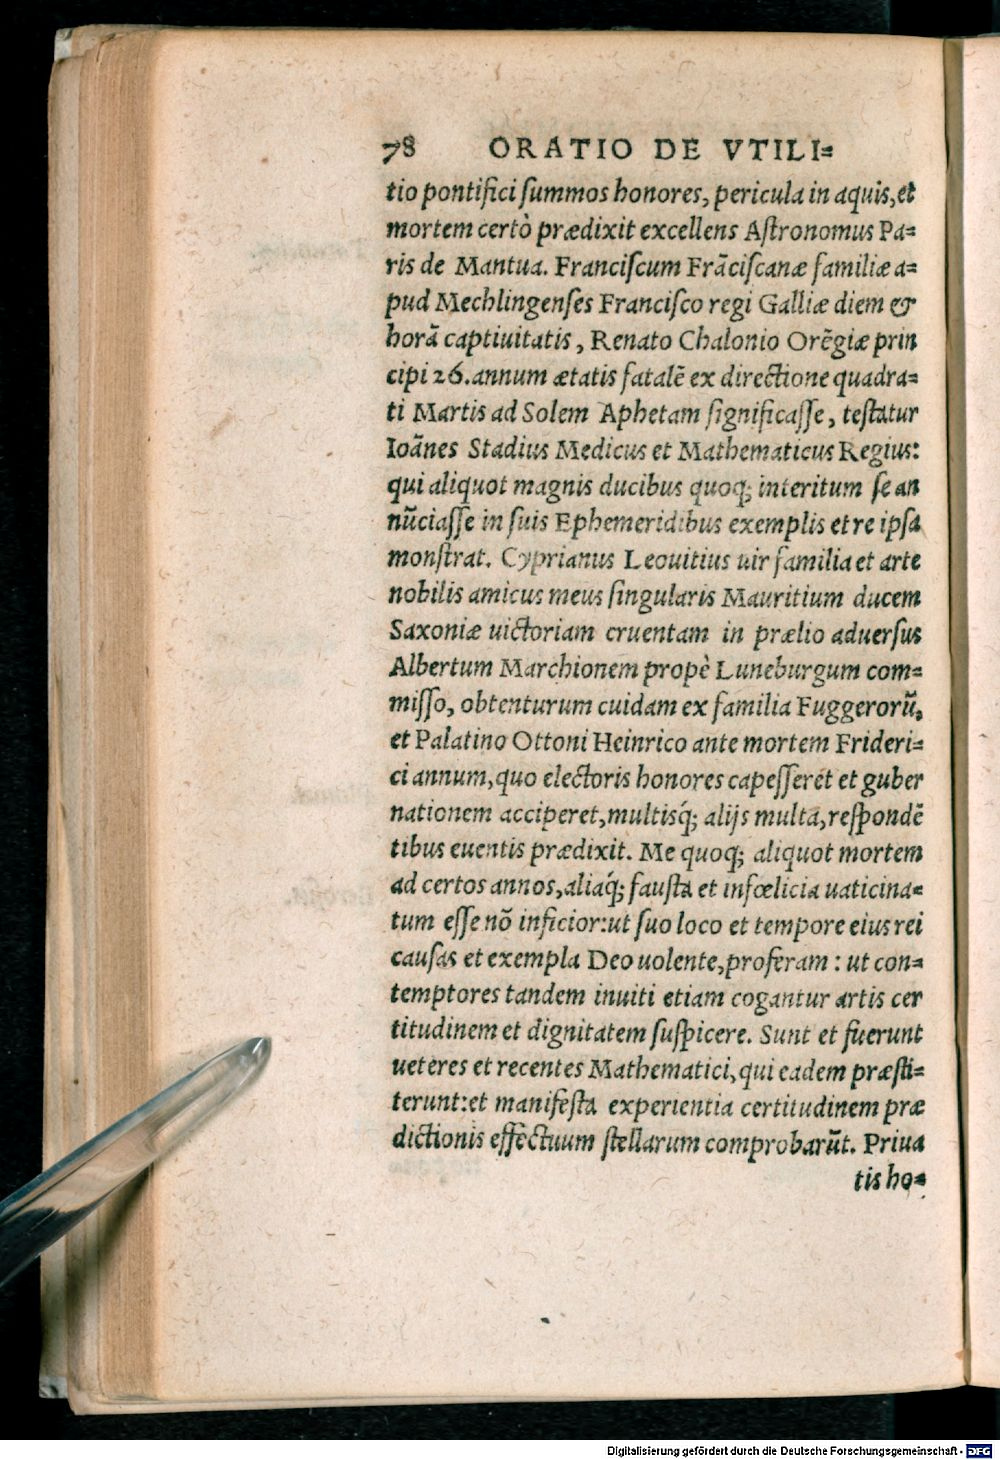 78 ORATIO DE VTILI=
tio pontifici ſummos honores, pericula in aquis, et
mortem certò prædixit excellens Aſtronomus Pa=
ris de Mantua. Franciſcum Frãciſcanæ familiæ a=
pud Mechlingenſes Franciſco regi Galliæ diem &
horã captiuitatis, Renato Chalonio Orẽgiæ prin
cipi 26. annum ætatis fatalẽ ex directione quadra=
ti Martis ad Solem Aphetam ſignificaſſe, teſtatur
Ioãnes Stadius Medicus et Mathematicus Regius:
qui aliquot magnis ducibus quoq; interitum ſe an
nũciaſſe in ſuis Ephemeridibus exemplis et re ipſa
monſtrat. Cyprianus Leouitius uir familia et arte
nobilis amicus meus ſingularis Mauritium ducem
Saxoniæ uictoriam cruentam in prælio aduerſus
Albertum Marchionem propè Luneburgum com=
miſſo, obtenturum cuidam ex familia Fuggerorũ,
et Palatino Ottoni Heinrico ante mortem Frideri=
ci annum, quo electoris honores capeſſeret et guber
nationem acciperet, multisq́; alijs multa, reſpondẽ
tibus euentis prædixit. Me quoq; aliquot mortem
ad certos annos, aliaq́; fauſta et infœlicia uaticina=
tum eſſe nõ inficior: ut ſuo loco et tempore eius rei
cauſas et exempla Deo uolente, proferam : ut con=
temptores tandem inuiti etiam cogantur artis cer
titudinem et dignitatem ſuſpicere. Sunt et fuerunt
ueteres et recentes Mathematici, qui eadem præſti=
terunt: et manifeſta experientia certitudinem præ
dictionis effectuum ſtellarum comprobarũt. Priua
tis ho=
Digitalisierung gefördert durch die Deutsche Forschungsgemeinschaft - DFG